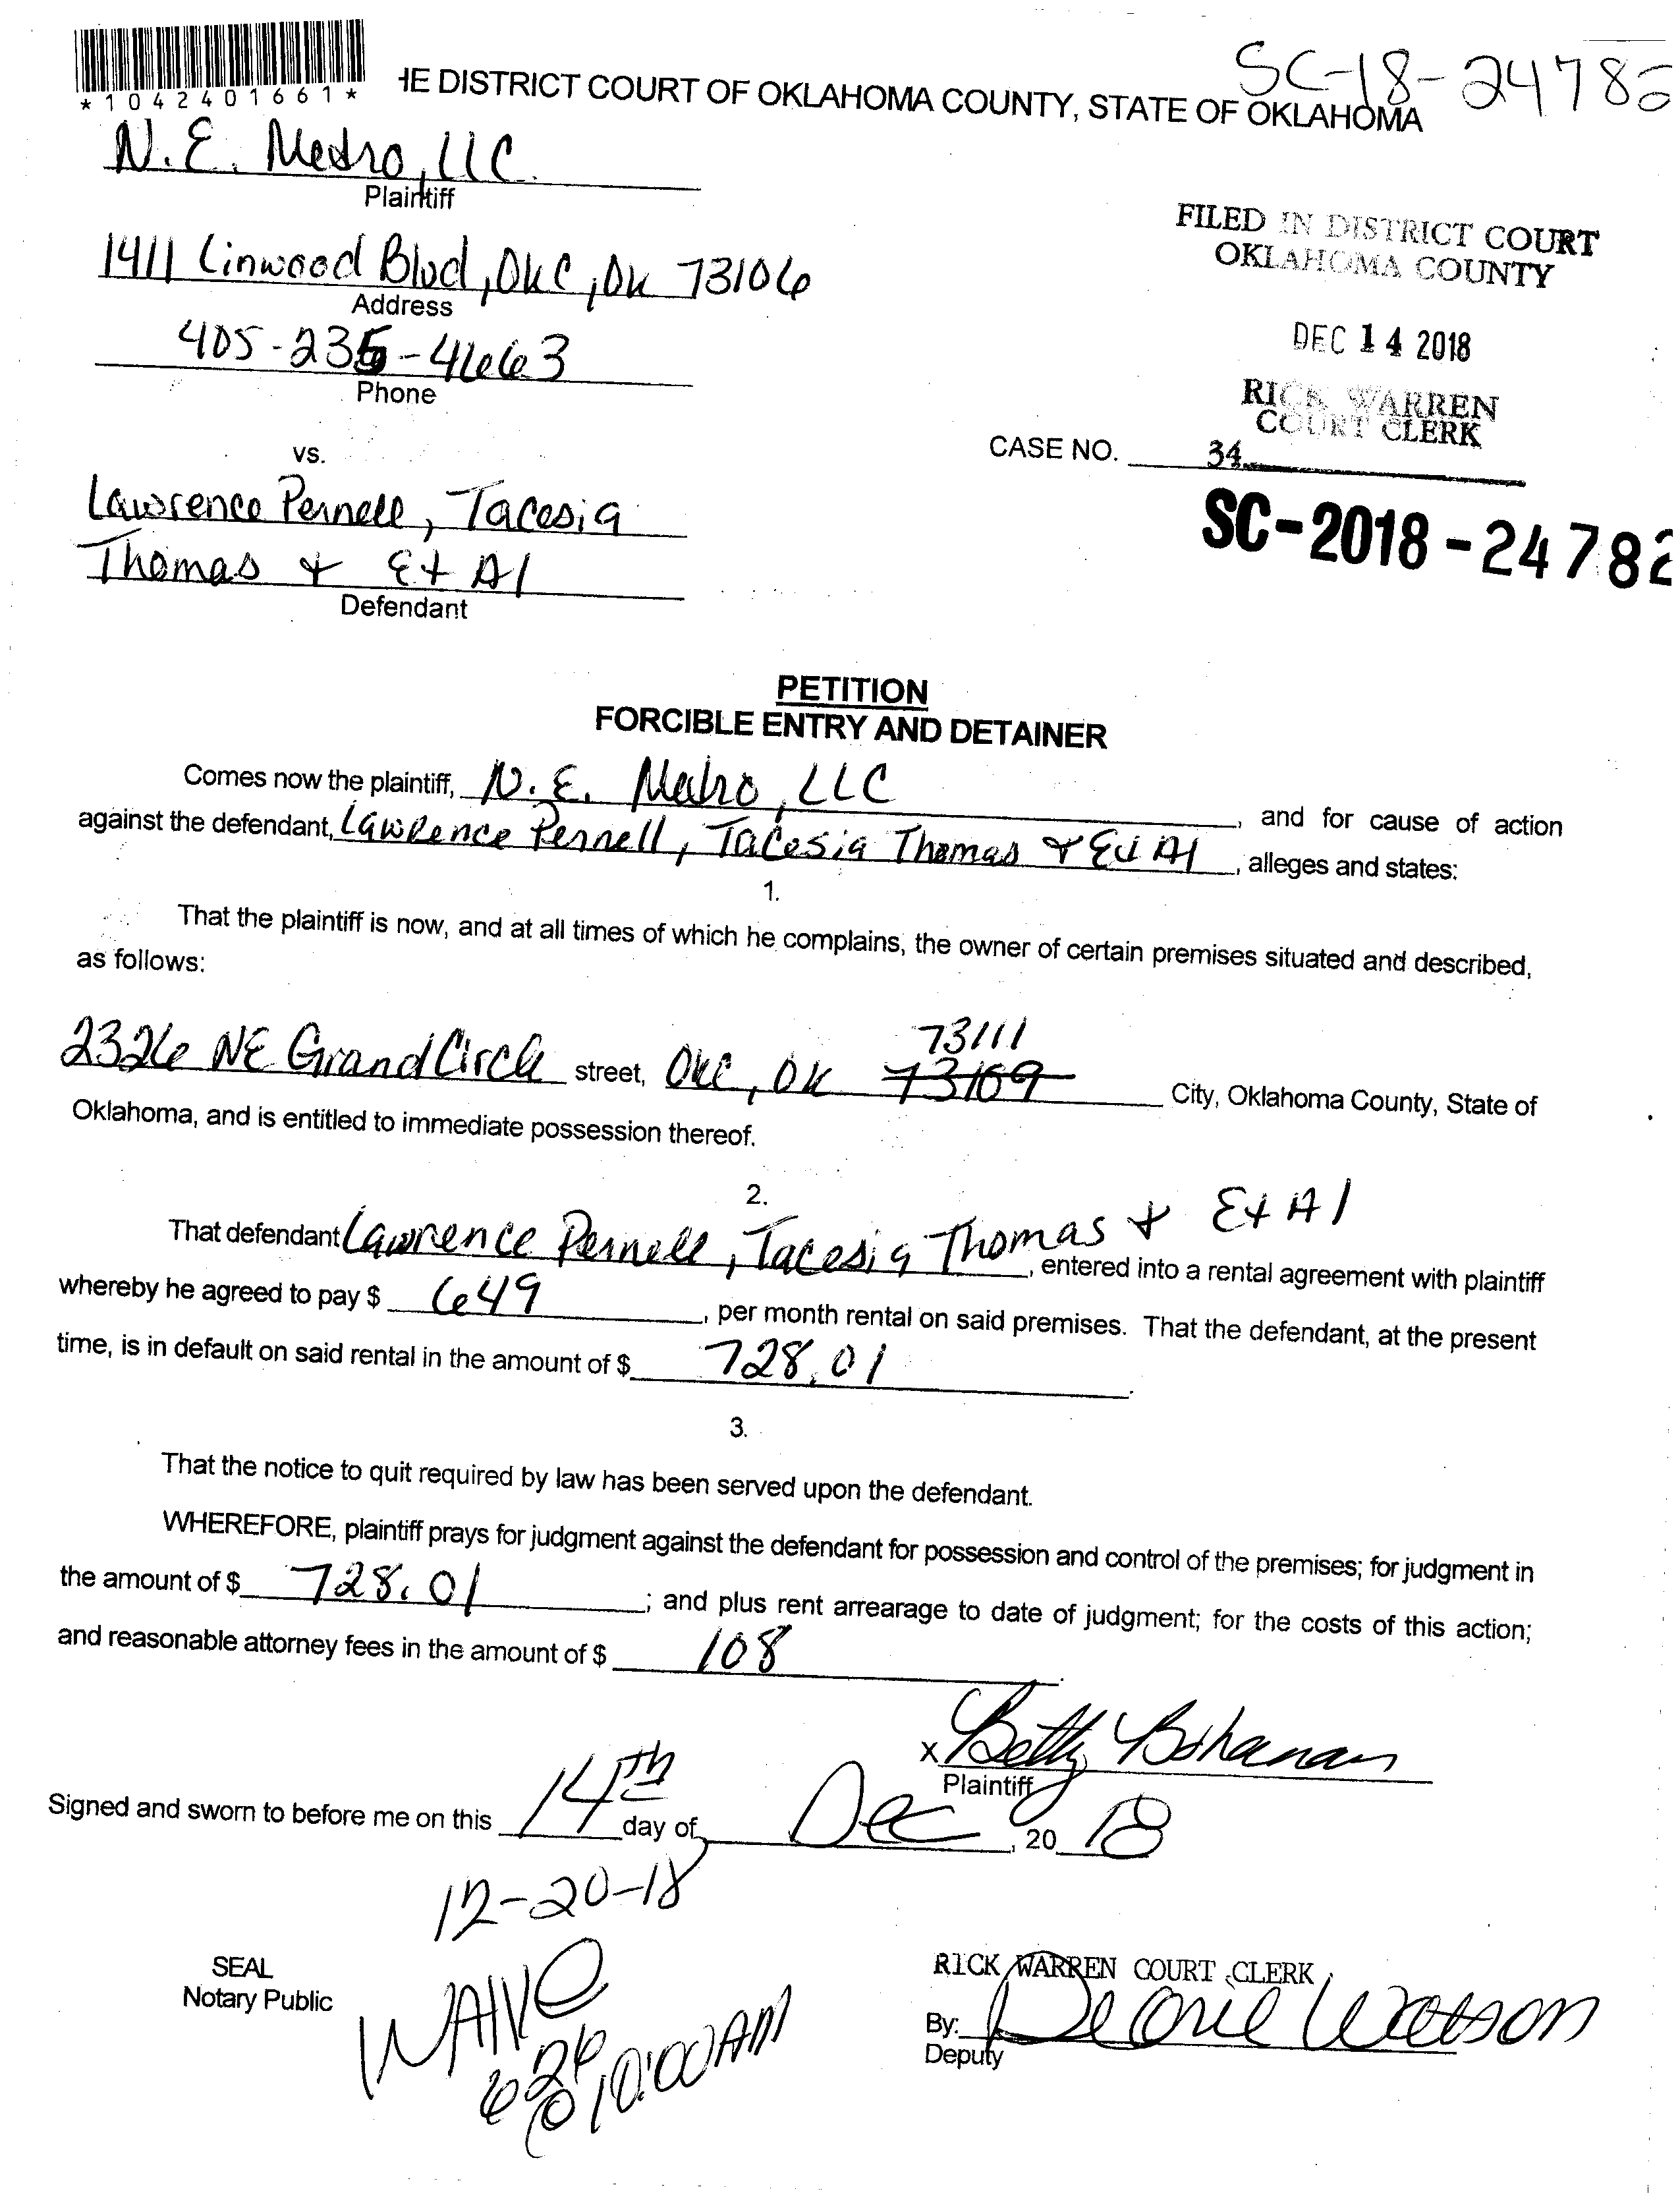 SC-18-24782
*1042401661*
HE DISTRICT COURT OF OKLAHOMA COUNTY, STATE OF OKLAHOMA
N.E. Metro, LLC
Plaintiff
1411 Linwood Blvd, OKC, OK 73106
Address
405-235-4663
Phone
FILED IN DISTRICT COURT
OKLAHOMA COUNTY
DEC 14 2018
RICK WARREN
COURT CLERK
vs.
CASE NO. 34
SC-2018-24782
Lawrence Pernell, Tacesia
Thomas & Et Al
Defendant
PETITION
FORCIBLE ENTRY AND DETAINER
Comes now the plaintiff, N.E. Metro, LLC, and for cause of action
against the defendant, Lawrence Pernell, Tacesia Thomas & Et Al, alleges and states:
1.
That the plaintiff is now, and at all times of which he complains, the owner of certain premises situated and described,
as follows:
73111
2326 NE Grand Circle street, OKC, OK 73109 City, Oklahoma County, State of
Oklahoma, and is entitled to immediate possession thereof.
2.
That defendant Lawrence Pernell, Tacesia Thomas & Et Al, entered into a rental agreement with plaintiff
whereby he agreed to pay $ 649, per month rental on said premises. That the defendant, at the present
time, is in default on said rental in the amount of $ 728.01.
3.
That the notice to quit required by law has been served upon the defendant.
WHEREFORE, plaintiff prays for judgment against the defendant for possession and control of the premises; for judgment in
the amount of $ 728.01; and plus rent arrearage to date of judgment; for the costs of this action;
and reasonable attorney fees in the amount of $ 108.
x Betty Bohanan
Plaintiff
Signed and sworn to before me on this 14th day of Dec, 20 18
12-20-18
SEAL
Notary Public
WAIVE
626
@ 10:00AM
RICK WARREN COURT CLERK
By: Watson
Deputy